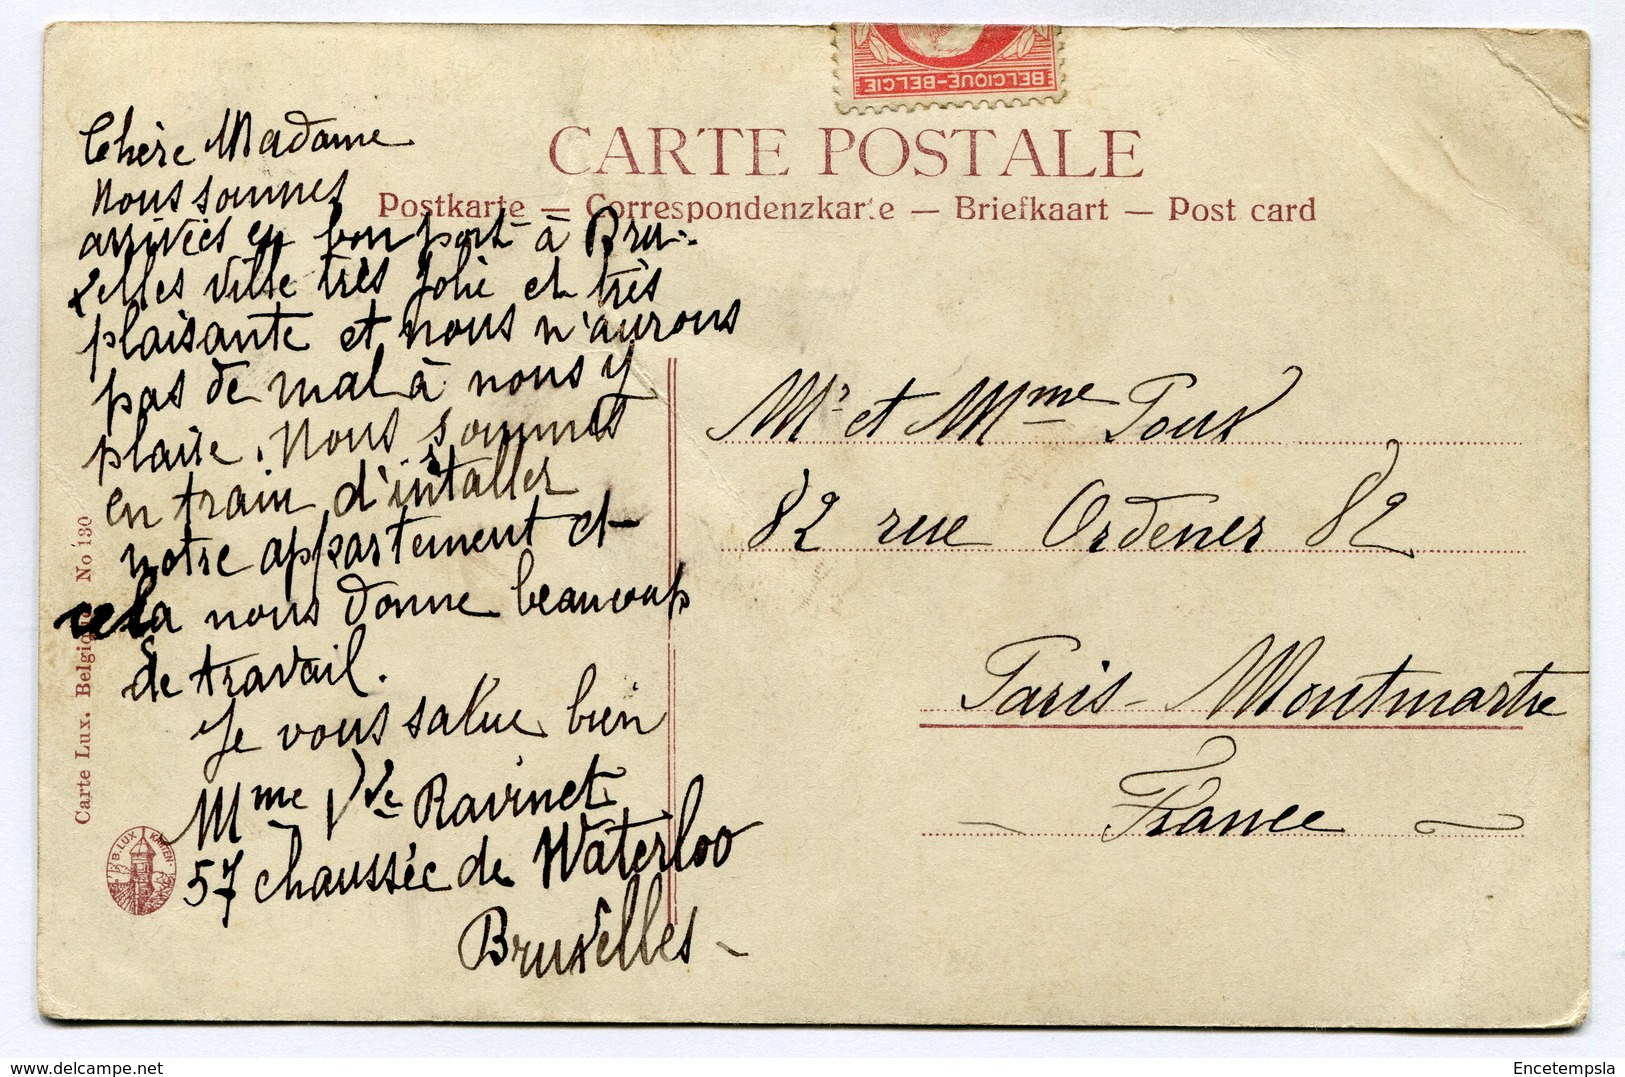 BELGIQUE-BELGIE
CARTE POSTALE
Postkarte — Correspondenzkarte — Briefkaart — Post card
Chère Madame
Nous sommes
arrivées en bon port à Bru-
xelles ville très Jolie et très
plaisante et nous n'aurons
pas de mal à nous y
plaire. Nous sommes
en train d'intaller
s
notre appartement et
cela nous donne beaucoup
de travail.
Je vous salue bien
Mme Vve Ravinet
57 chaussée de Waterloo
Bruxelles -
Mr et Mme Poux
82 rue Ordener 82
Paris - Montmartre
France
Carte Lux. Belgique No 130
B. LUX KARTEN
Encetempsla